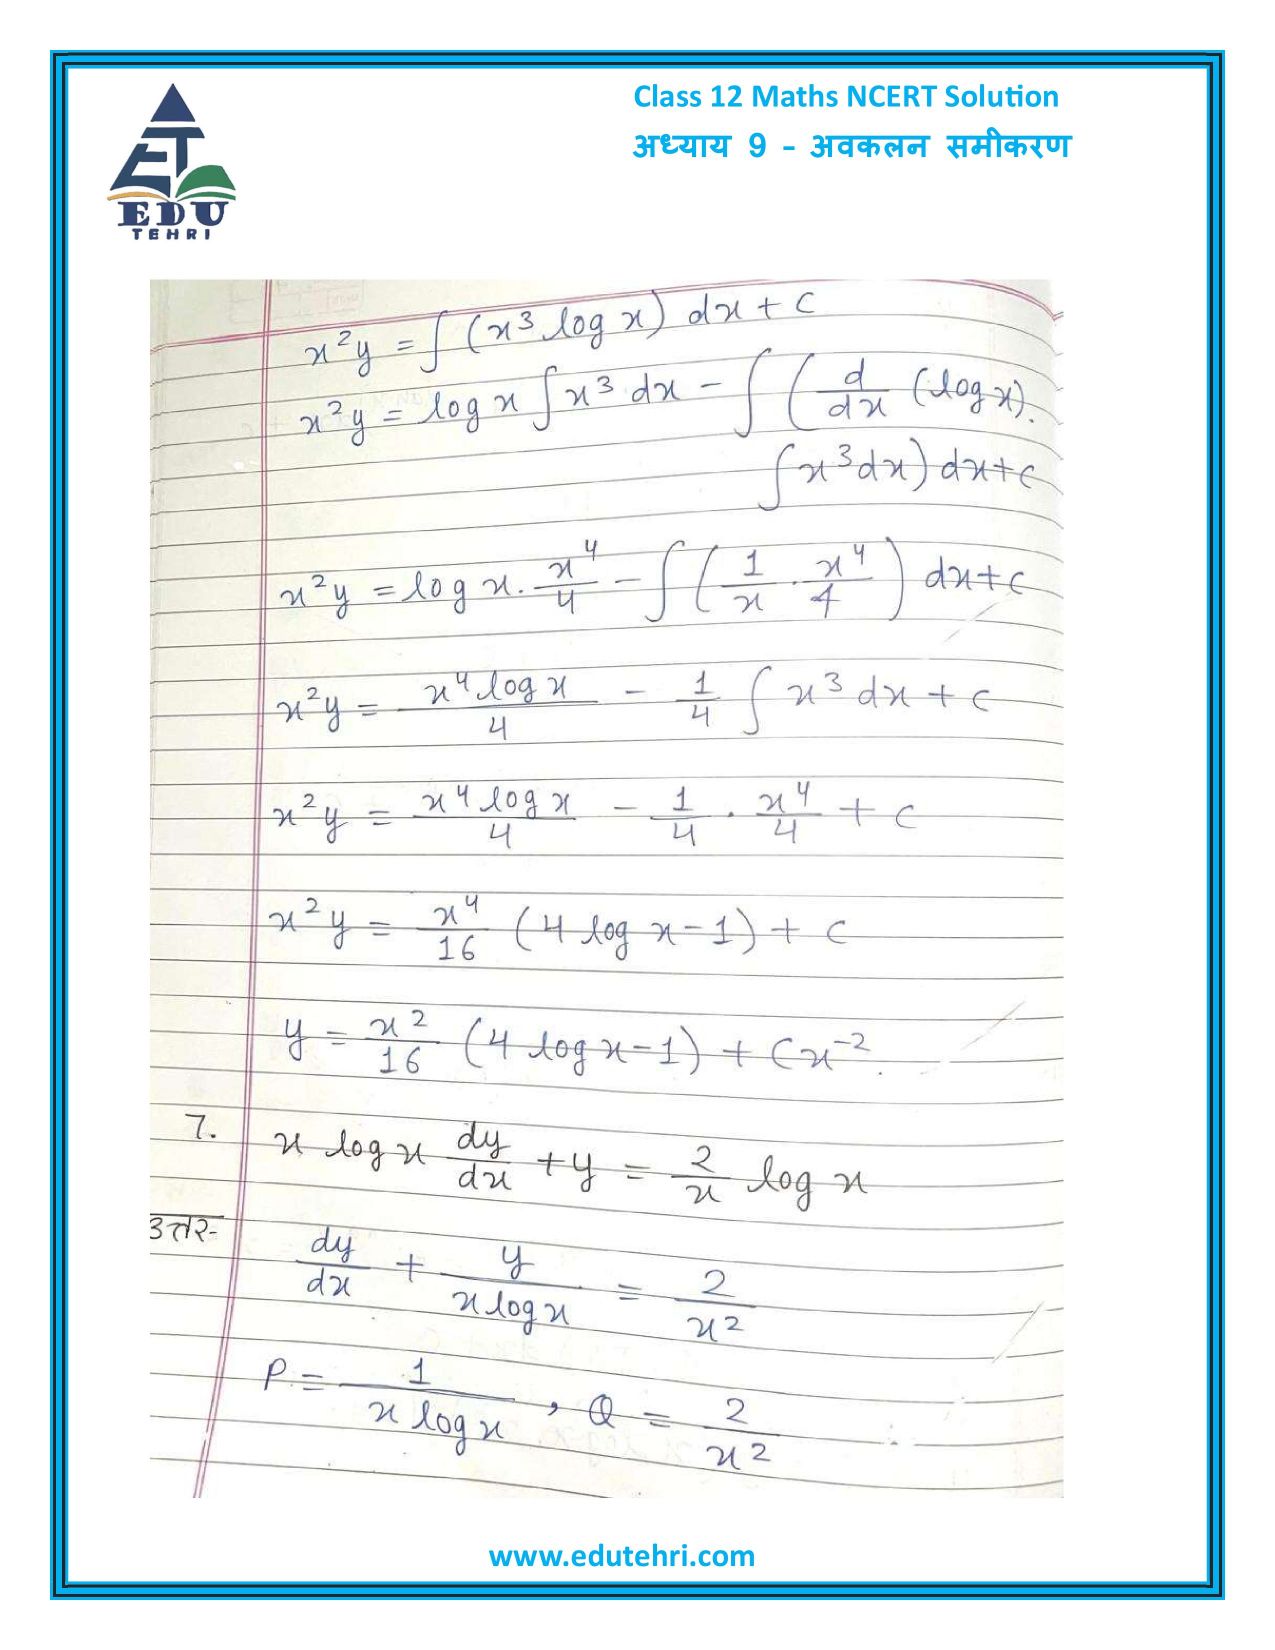 Class 12 Maths NCERT Solution
अध्याय 9 – अवकलन समीकरण
EDU
TEHRI
x²y = ∫ (x³ log x) dx + c
x²y = log x ∫ x³ dx − ∫ ( d/dx (log x).
∫ x³ dx) dx + c
x²y = log x . x⁴/4 − ∫ ( 1/x . x⁴/4 ) dx + c
x²y = x⁴ log x / 4 − 1/4 ∫ x³ dx + c
x²y = x⁴ log x / 4 − 1/4 . x⁴/4 + c
x²y = x⁴/16 (4 log x − 1) + c
y = x²/16 (4 log x − 1) + Cx⁻².
7. x log x dy/dx + y = 2/x log x
उत्तर- dy/dx + y/(x log x) = 2/x²
P = 1/(x log x) , Q = 2/x²
www.edutehri.com